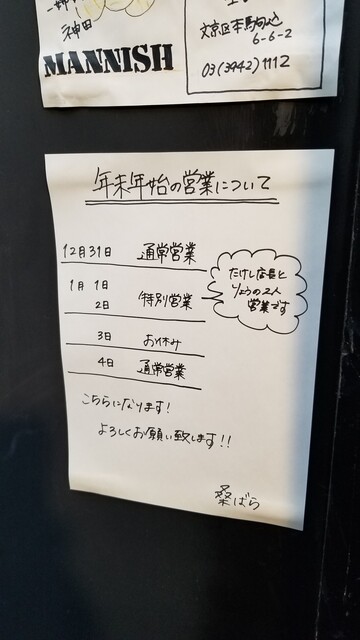 神田
MANNISH
文京区本駒込
6-6-2
03(3942)1112
年末年始の営業について
12月31日 通常営業
1月 1日
2日 特別営業
たけし店長と
りょうの2人
営業です
3日 お休み
4日 通常営業
こちらになります!
よろしくお願い致します!!
桑ばら